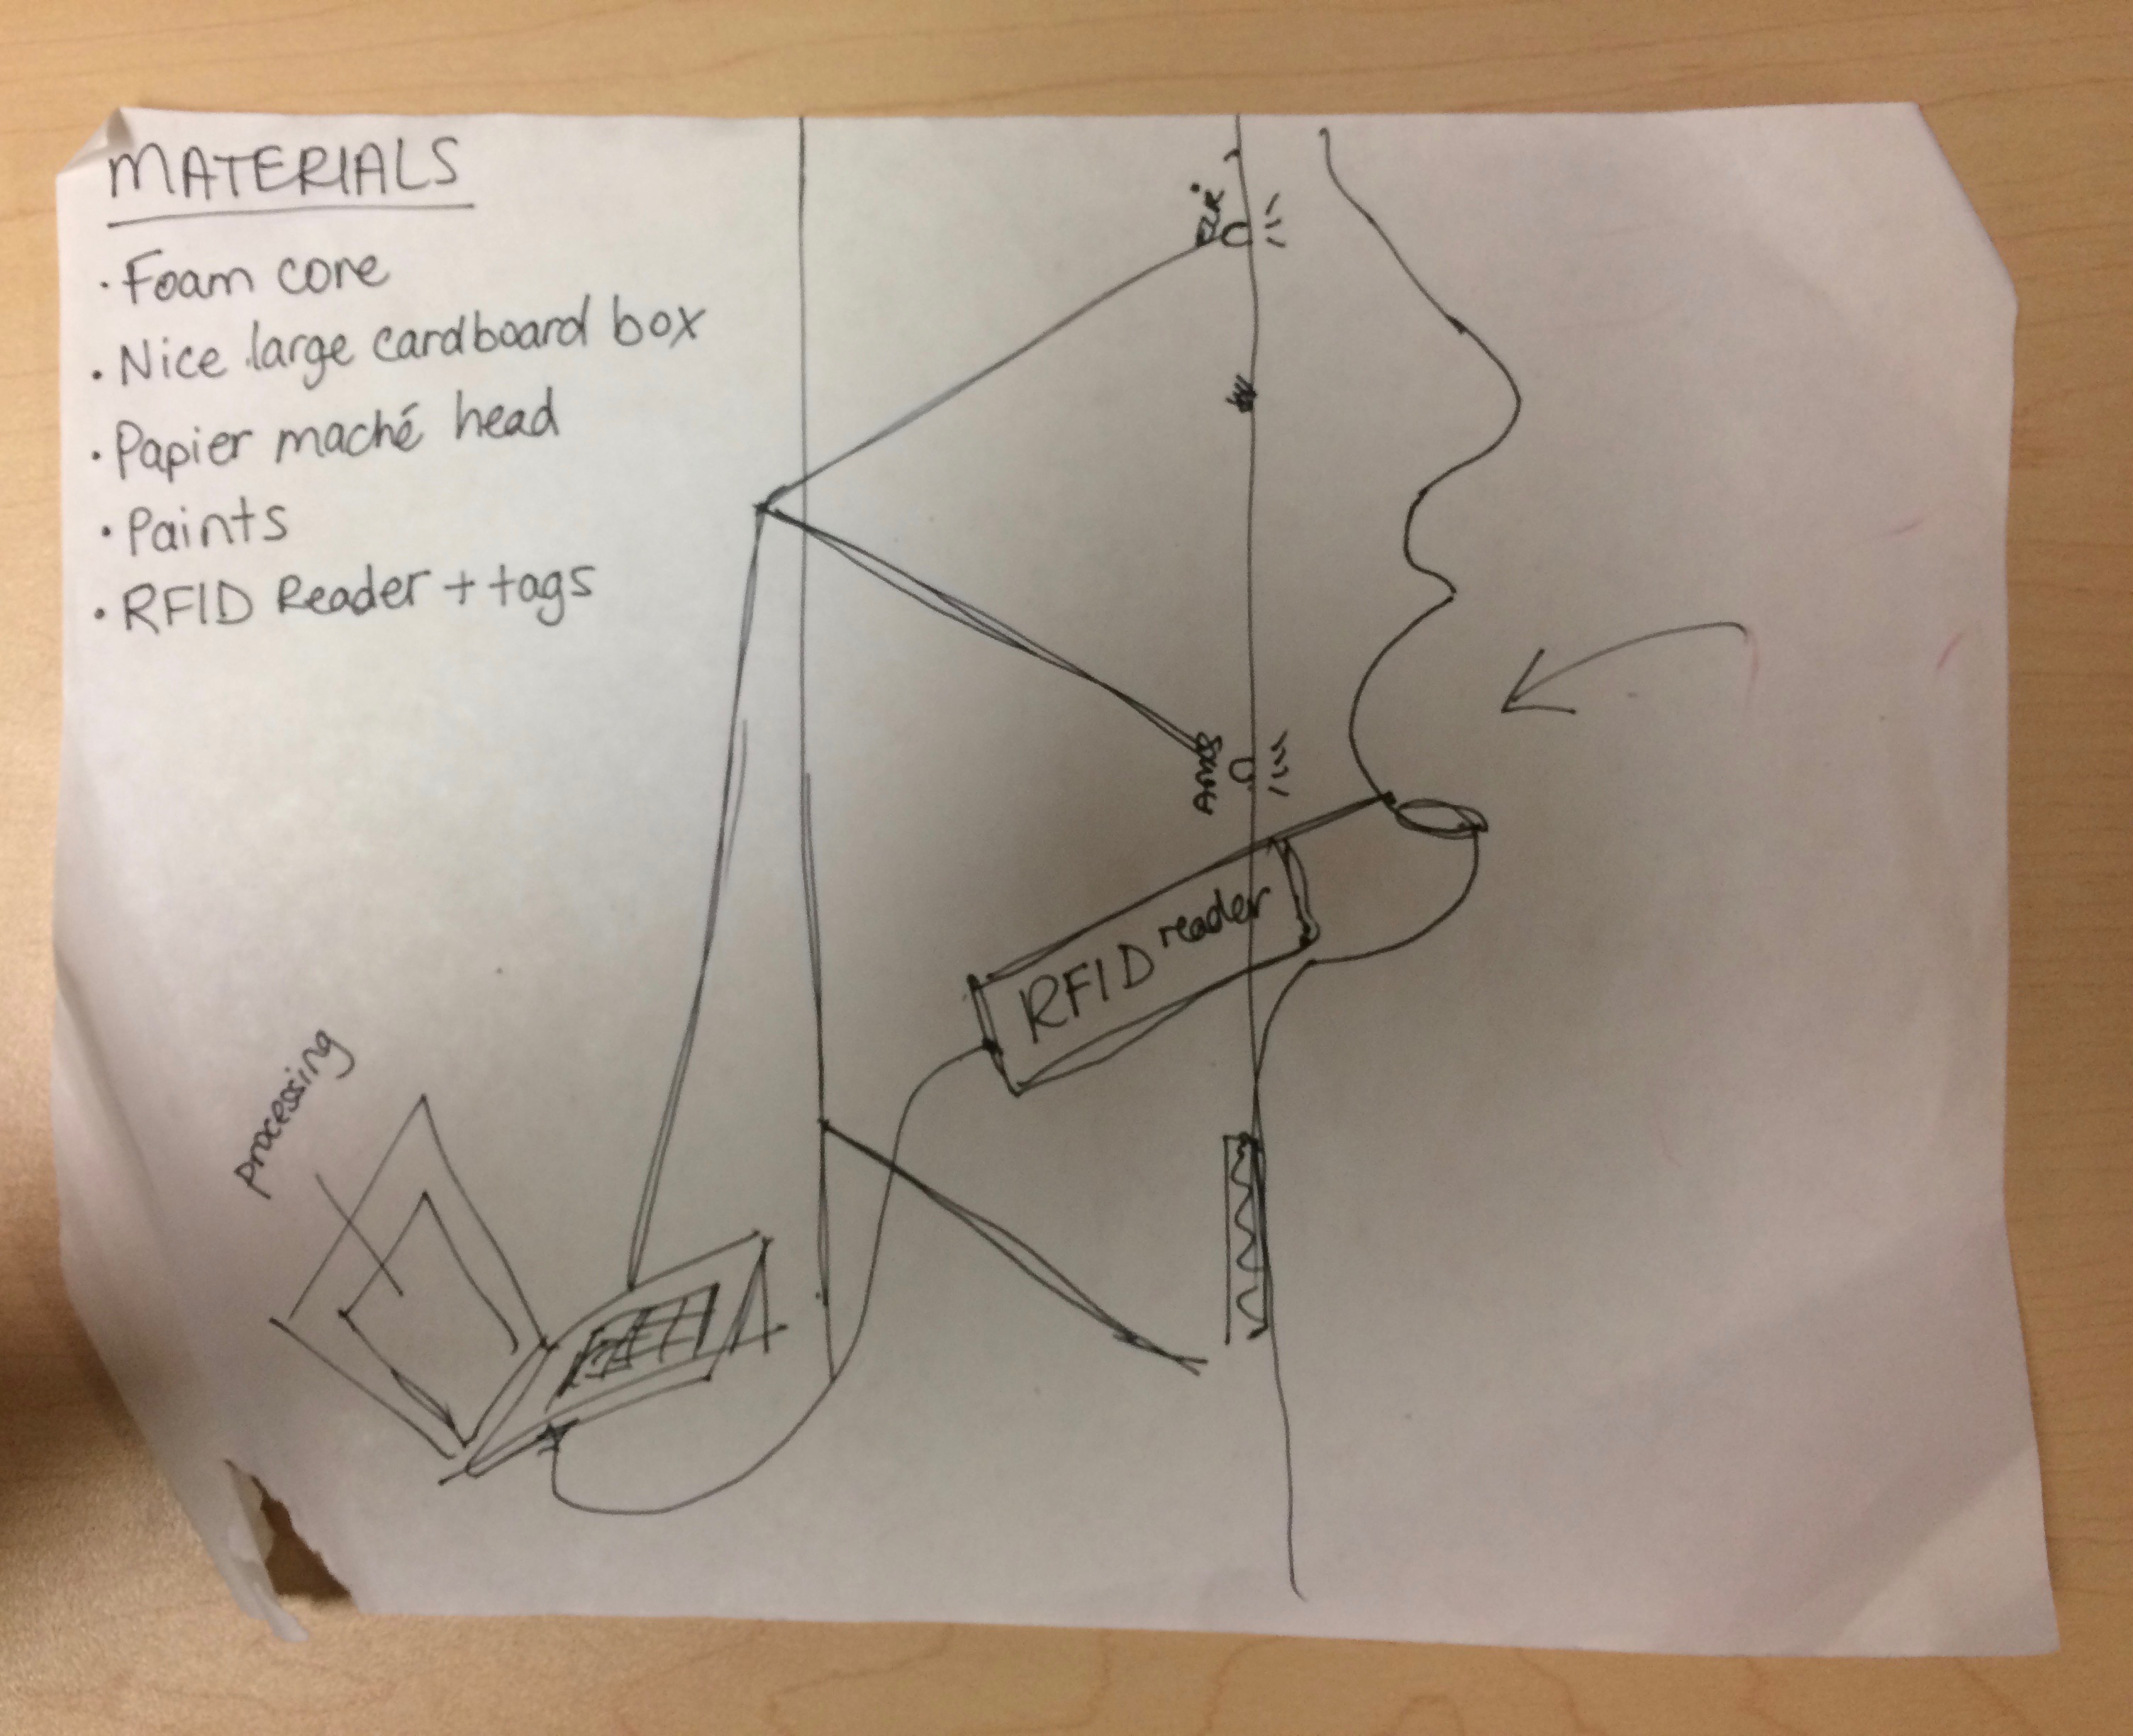 MATERIALS
· Foam core
· Nice large cardboard box
· Papier maché head
· Paints
· RFID Reader + tags
RFID reader
Processing